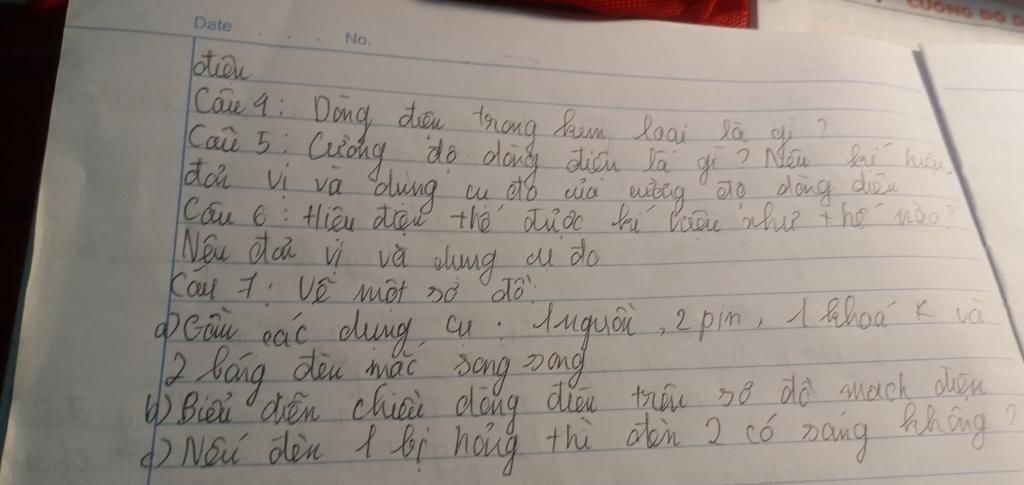 CƯỜNG ĐỘ D
Date . . . No.
điện
Câu 4: Dòng điện trong kim loại là gì?
Câu 5: Cường độ dòng điện là gì? Nêu kí hiệu,
đơn vị và dụng cụ đo của cường độ dòng điện
Câu 6: Hiệu điện thế được kí hiệu như thế nào?
Nêu đơn vị và dụng cụ đo
Câu 7: Vẽ một sơ đồ:
a) Gồm các dụng cụ: 1 nguồn, 2 pin, 1 khoá K và
2 bóng đèn mắc song song
b) Biểu diễn chiều dòng điện trên sơ đồ mạch điện
c) Nếu đèn 1 bị hỏng thì đèn 2 có sáng không?